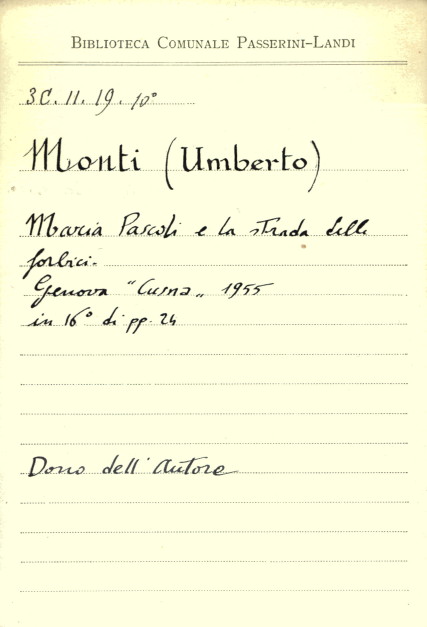 BIBLIOTECA COMUNALE PASSERINI-LANDI
3C. II. 19. 10°
Monti (Umberto)
Maria Pascoli e la strada delle
forbici.
Genova "Cusna„ 1955
in 16° di pp. 24
Dono dell'Autore